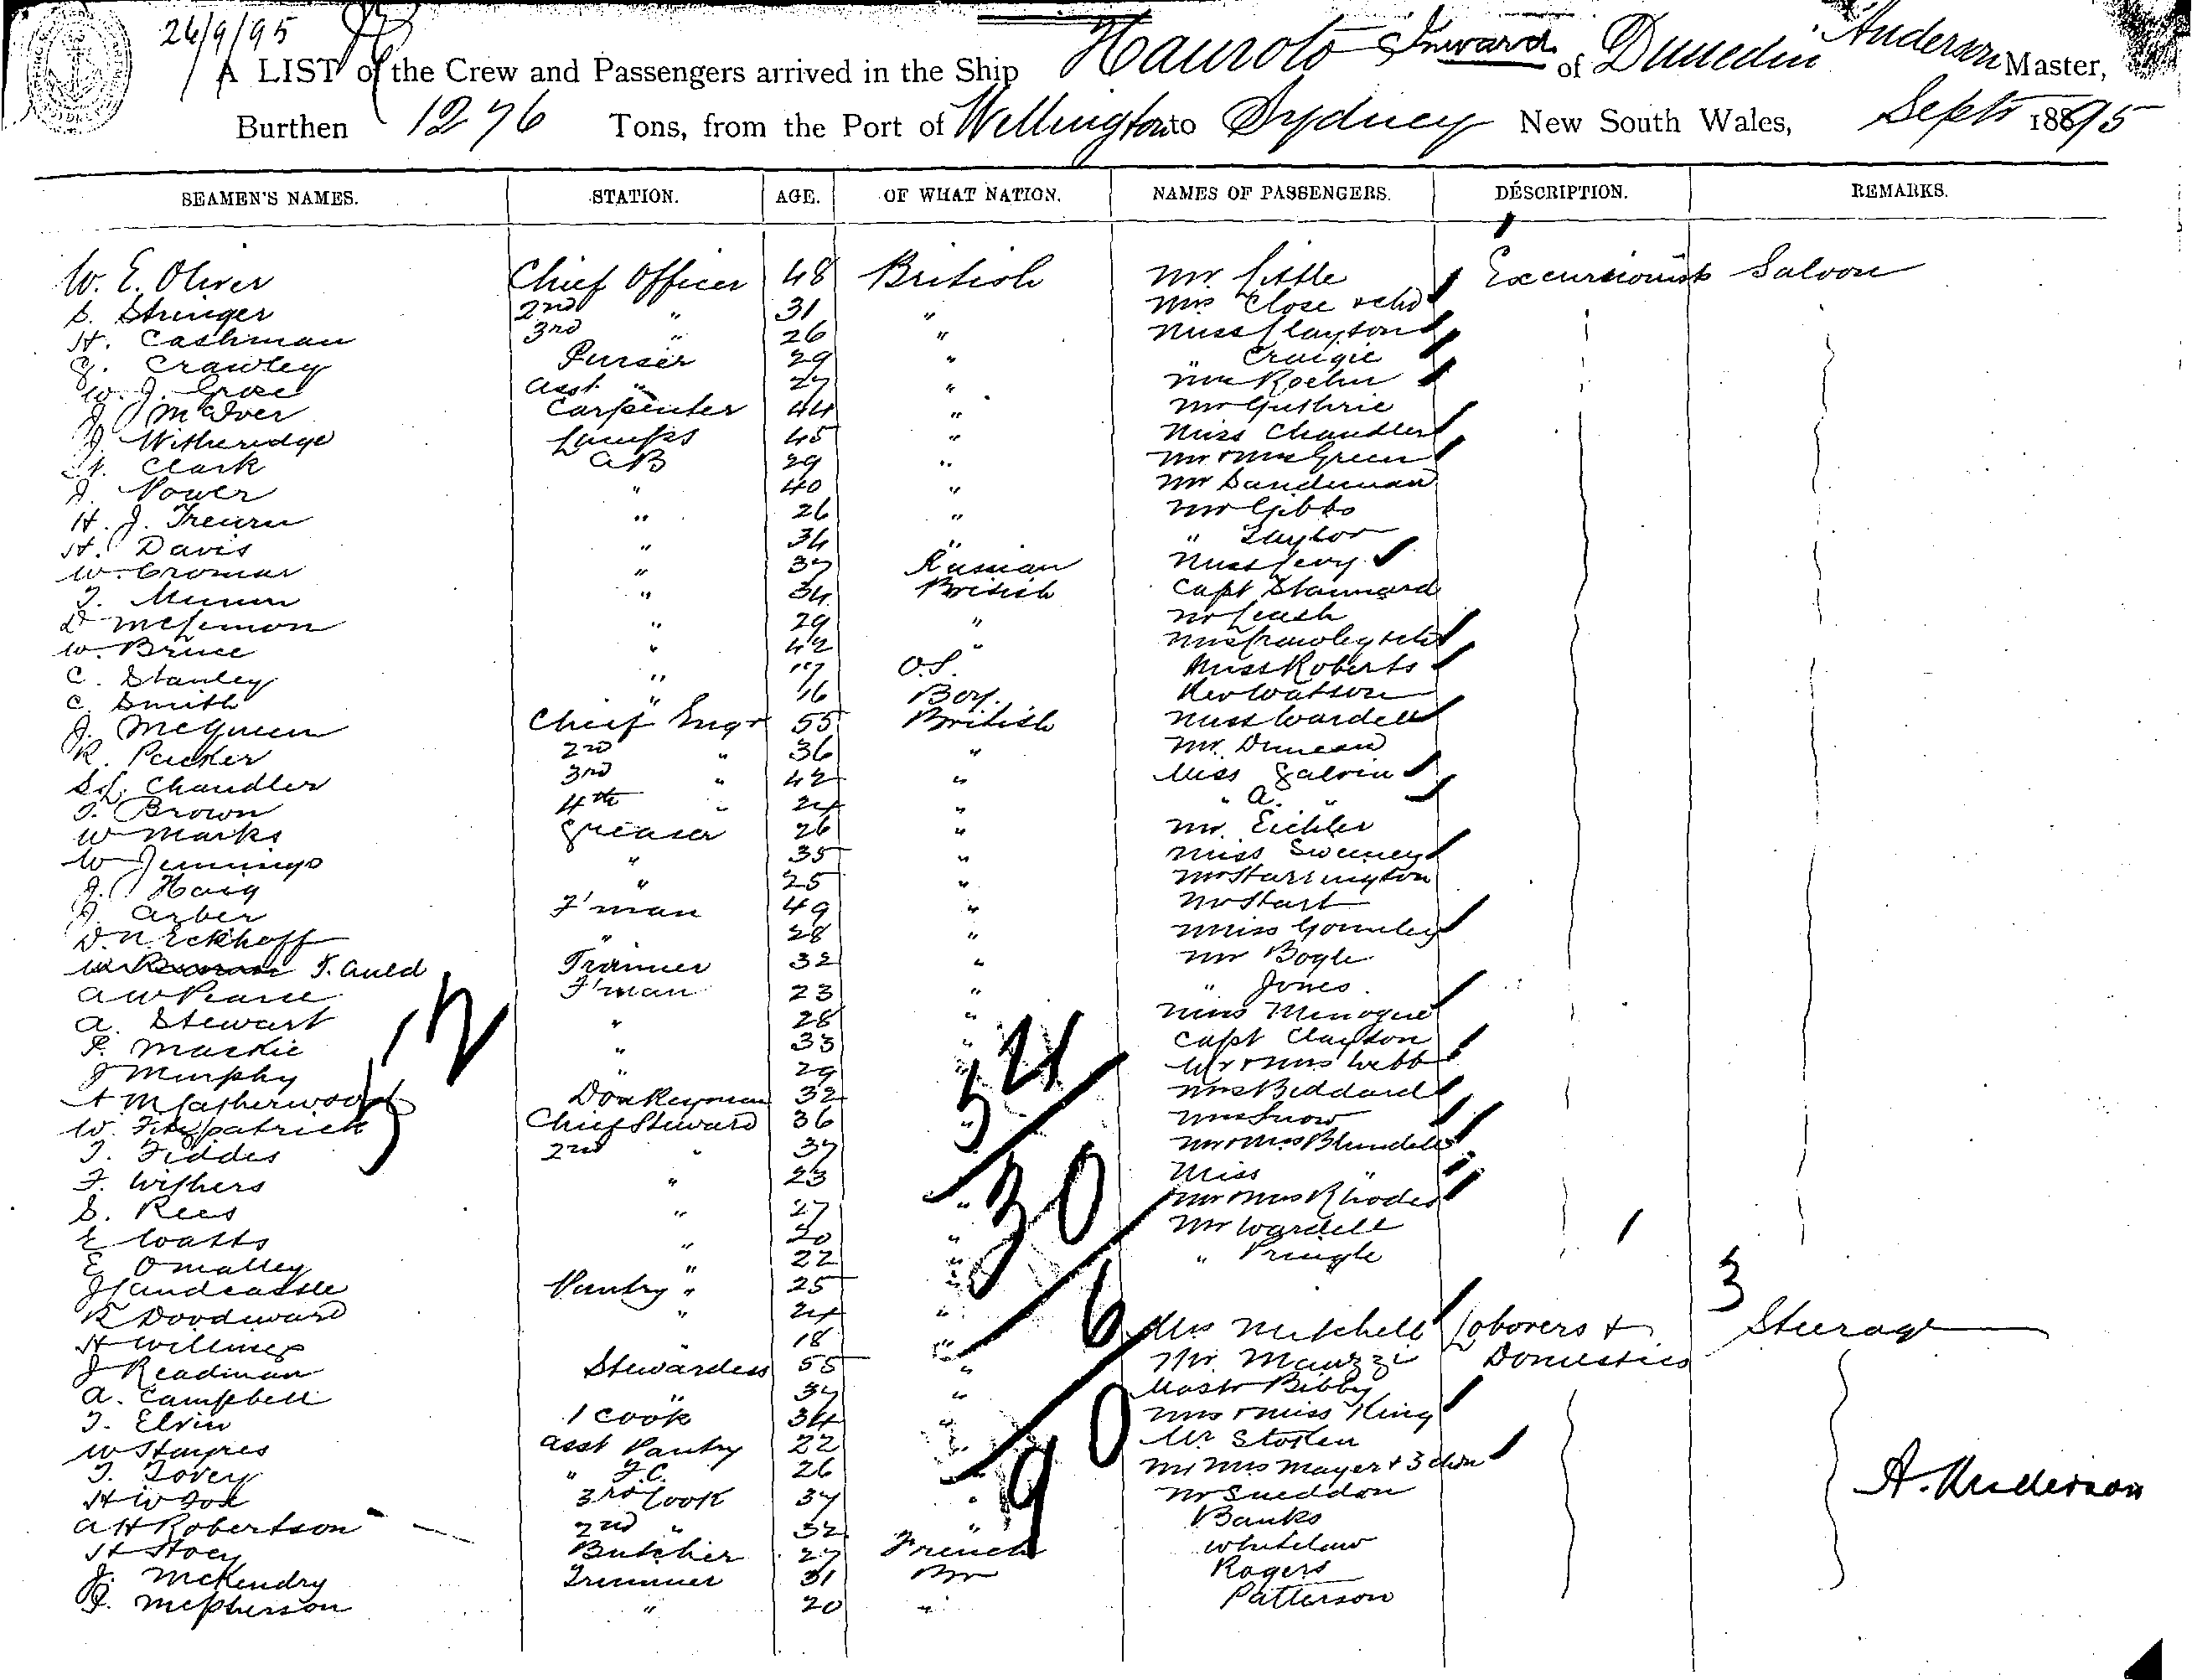 26/9/95
A LIST of the Crew and Passengers arrived in the Ship Hauroto Inward of Dunedin Anderson Master,
Burthen 1276 Tons, from the Port of Wellington to Sydney New South Wales, Septr 1895
SEAMEN'S NAMES. STATION. AGE. OF WHAT NATION. NAMES OF PASSENGERS. DESCRIPTION. REMARKS.
W. E. Oliver Chief Officer 48 British Mr Little Excursionists Saloon
S. Stringer 2nd " 31 " Mrs Close & chd
H. Cashman 3rd " 26 " Miss Clayton
G. Crawley Purser 29 " " Craigie
W. J. Grose Asst " 27 " Roehn
J. McIver Carpenter 44 " Mr Guthrie
J. Witheridge Lamps 45 " Miss Chandler
Clark AB 29 " Mr & Mrs Green
J. Power " 40 " Mr Sandeman
H. J. Trearn " 26 " Mr Gibbs
H. Davis " 34 " " Taylor
W. Cromar " 37 Russian Miss Levy
T. Munn " 34 British Capt Stannard
D McLennon " 29 " Mr Leach
W. Bruce " 42 " Mrs Crawley & chd
C. Stanley " 17 O.S. Miss Roberts
C. Smith " 16 Boy. Rev Watson
J. McQueen Chief Engr 55 British Miss Wardell
R. Packer 2nd " 36 " Mr. Duncan
Chandler 3rd " 42 " Miss Galvin
T. Brown 4th " 24 " " A. "
W Marks Greaser 26 " Mr. Eichler
W Jennings " 35 " Miss Sweeney
J. Haig " 25 " Mr Harrington
J. Arber F'man 49 " Mr Hart
D. N. Eckhoff " 28 " Miss Gormley
T. Auld Trimmer 32 " Mr Bogle
A W Pearce F'man 23 " " Jones.
A. Stewart " 28 " Miss Minogue
P. Mackie " 33 " Capt Clayton
J Murphy " 29 " Mr & Mrs Webb
A McCatherwood Donkeyman 32 " Mrs Beddard
W. Fitzpatrick Chief Steward 36 " Snow
T. Fiddes 2nd " 37 Mr & Mrs Blundell
F. Withers " 23 Miss "
S. Rees " 27 " Mr & Mrs Rhodes
E Watts " 20 " Mr Wardell
E Omalley " 22 " " Pringle
J Candcastle Pantry " 25 "
R Doodeward " 24 "
H Willings " 18 " Mrs Mitchell Laborers & Steerage
J Readman Stewardess 55 " Mr. Mauzzi Domestics
A. Campbell " 37 " Mastr Bibby
T. Elvin 1 Cook 34 " Mrs & Miss King
W Stayres Asst Pantry 22 " Mr Stoten
T. Tovey " F.C. 26 Mr Mrs Mayer & 3 chn
H W Fox 3rd Cook 37 " Mr Sneddon A. Anderson
A H Robertson 2nd " 32 " Banks
H Hoey Butcher 27 French Whitelaw
J. McKendry Trimmer 31 Br Rogers
J. McPherson " 20 " Patterson
12
5
54
30
6
90
3